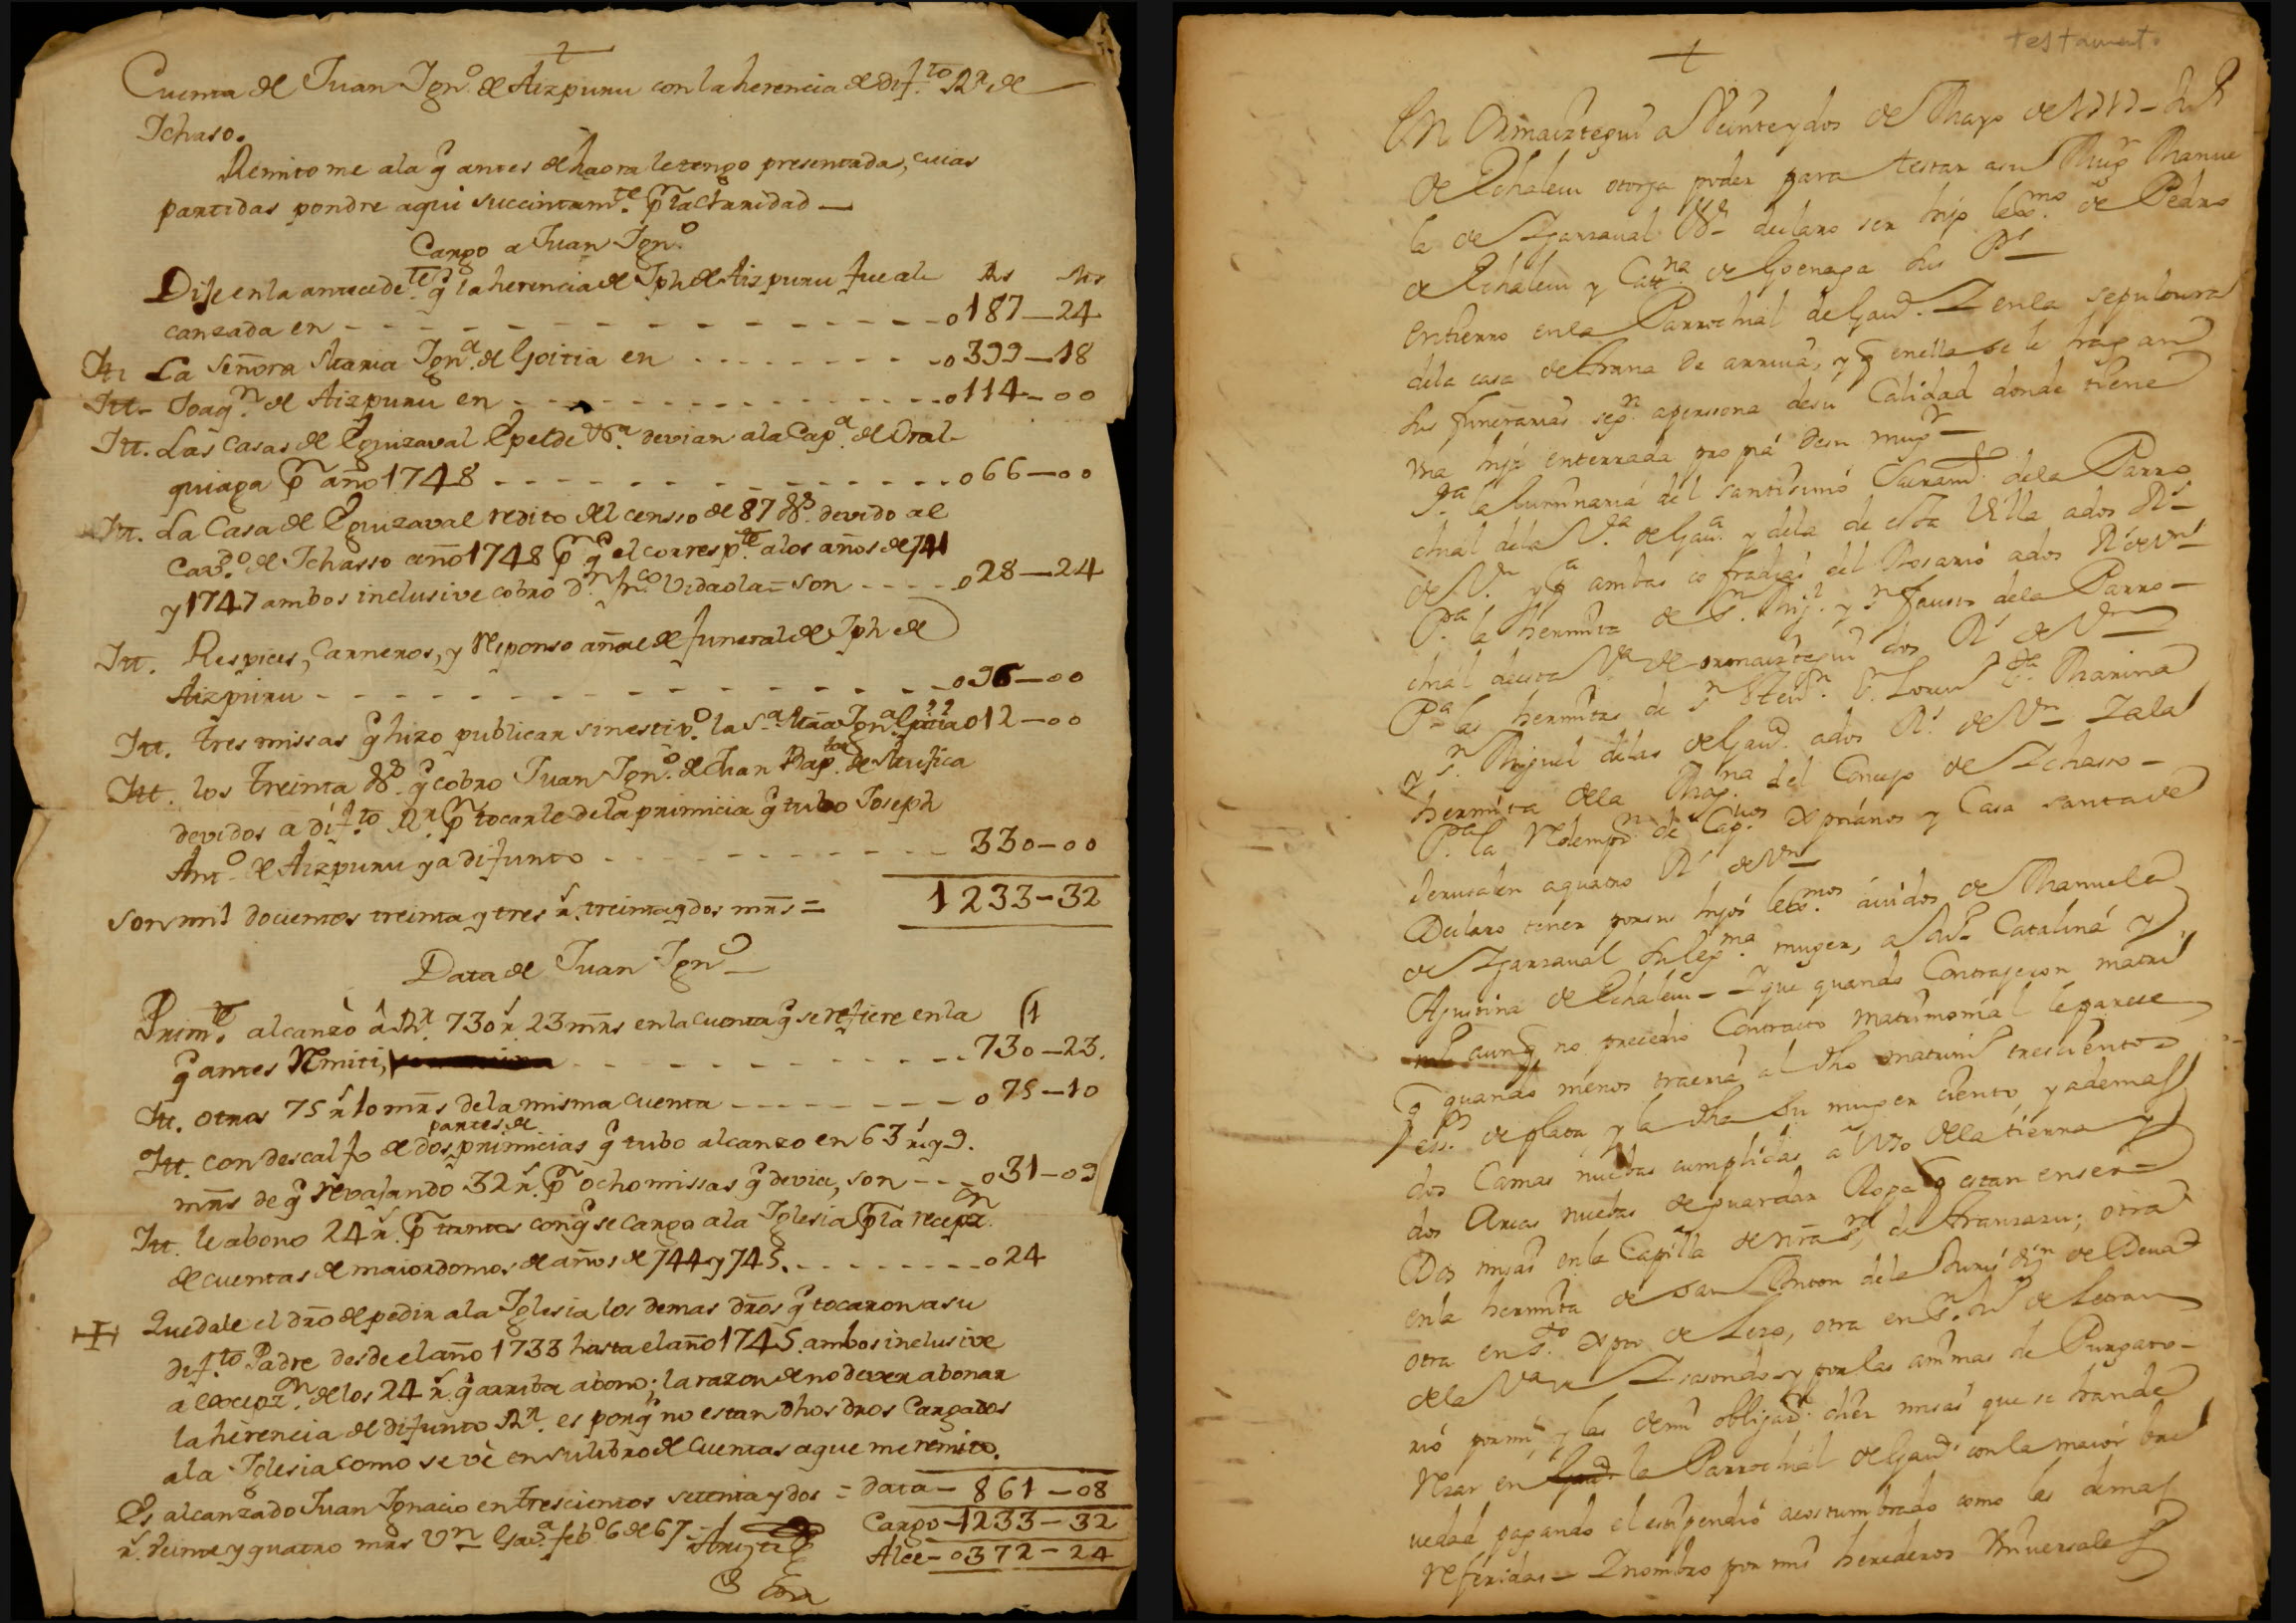 Cuenta de Juan Ignº. de Aizpuru con la herencia de dif.to Rr. de
Ichaso.
Remitome a la q̃ antes de haora le tengo presentada, cuias
partidas pondre aqui succintam.te p̃ la claridad —
Cargo a Juan Ignº.
Dije en la antecede.te q̃ la herencia de Jph de Aizpuru fue al Rs Ms
canzada en - - - 0187—24
Itt La señora Maria Ign.a de Goitia en - - - 0399—18
Itt— Joaq.n de Aizpuru en - - - 0114—00
Itt. Las casas de Eguizaval Epelde devian a la Cap.a de
quiaga p̃ año 1748 - - - 066—00
Itt. La Casa de Eguizaval redito del censso de 87 ds. devido al
Cav.do de Ichasso año 1748 p̃ q̃ el corresp.te a los años de 741
y 1747 ambos inclusive cobró D.n Fr.co Vidaola = son - - - 028—24
Itt. Respices, Carneros, y Responso añal de funeral de Jph de
Aizpuru - - - 096—00
Itt. tres missas q̃ hizo publicar sin estip.º la S.a Mña Ign.a Goitia 012—00
Itt. los treinta ds. q̃ cobro Juan Ignº. de Juan Bap.ta de
devidos a dif.to Rr. p̃ tocarle de la primicia q̃ tubo Joseph
Antº. de Aizpuru ya difunto - - - 330—00
son mil docientos treinta y tres rs. treinta y dos mrs = 1233—32
Data de Juan Ignº
Prim.te alcanzò â Rr. 730 rs. 23 mrs en la cuenta q̃ se refiere en la
q̃ antes Remiti, - - - 730—23.
Itt. otros 75 rs 10 mrs de la misma cuenta - - - 075—10
partes de
Itt. con descalfo de dos primicias q̃ tubo alcanzo en 63 rs. y 9.
mrs de q̃ revajando 32 rs. p̃ ocho missas q̃ devia, son - - - 031—09
Itt. le abono 24 rs. p̃ tantos con q̃ se cargo a la Iglesia p̃ la recepz.n
de cuentas de maiordomos de años de 744 y 745. - - - 024
Quedale el dr̃o de pedir a la Iglesia los demas dr̃os q̃ tocaron a su
dif.to Padre desde el año 1733 hasta el año 1745. ambos inclusive
a excepz.n de los 24 rs. q̃ arriba abono; la razon de no dever abonar
la herencia de difunto Rr. es porq̃ no estan dhos dr̃os Cargados
a la Iglesia como se vè en su libro de Cuentas a que me remito.
Es alcanzado Juan Ignacio en trescientos setenta y dos = data— 861—08
rs. veinte y quatro mrs Vn Gav.a feb.º 6 de 67 = Cargo—1233—32
Alce—0372—24
testamento
En Ormaiztegui a Veinte y dos de Mayo de
de Echaleu otorga poder para testar a su Mug.r Manue
la de Igarzaval declaro ser hijo legmo. de Pedro
de Echaleu y Cat.na de Goenaga sus Ps
entierro en la Parrochial de Gav.a Y en la sepultura
de la casa de Arana de arriva, y q̃ en ella se le hagan
sus funerarias seg.n a persona de su Calidad donde tiene
una hija enterrada propia de su mug.r
P.a la luminaria del santisimo Sacram.to de la Parro
chial de la V.a de Gav.a y de la de esta Villa a dos Rs
de V.n y p.a ambas cofradias del Rosario a dos Rs de Vn
P.a la hermita de S.n Mig.l y S.n Fausto de la Parro—
chial de esta V.a de ormaiztegui dos Rs de Vn
P.a las hermitas de S.n Marina
y S.n Miguel de las de Gav.a a dos Rs de Vn Y a la
hermita de la Mag.na del Concejo de Ichasso—
P.a la Redempz.n de Cap.vos Xptianos y Casa santa de
Jerusalen a quatro Rs de Vn
Declaro tener por sus hijos legmos. avidos de Manuela
de Igarzaval su leg.ma muger, a Catalina y
Agustina de Echaleu— Y que quando Contrajeron matri
aunq̃ no precedio Contracto matrimonial le parece
q̃ quando menos traeria al dho matrim.º trescientos
de plata y la dha su muger ciento, y ademas
dos Camas nuebas cumplidas a Uso de la tierra y
dos Arcas nuebas de guardar Ropa q̃ estan en ser—
Dos misas en la Capilla de nr̃a S.ra de Aranzazu; otra
en la hermita de san Anton de la Jurisdiz.n de Deva
otra en S.to Xpto de Lezo, otra en S.n de
de la V.a de Isasondo y por las animas de Purgato—
rio por mi, y las de mi obligaz.n diez misas que se han de
Rezar en la Parrochial de Gav.a con la maior bre
vedad pagando el estipendio acostumbrado como las demas
referidas— Y nombro por mis herederos Universales